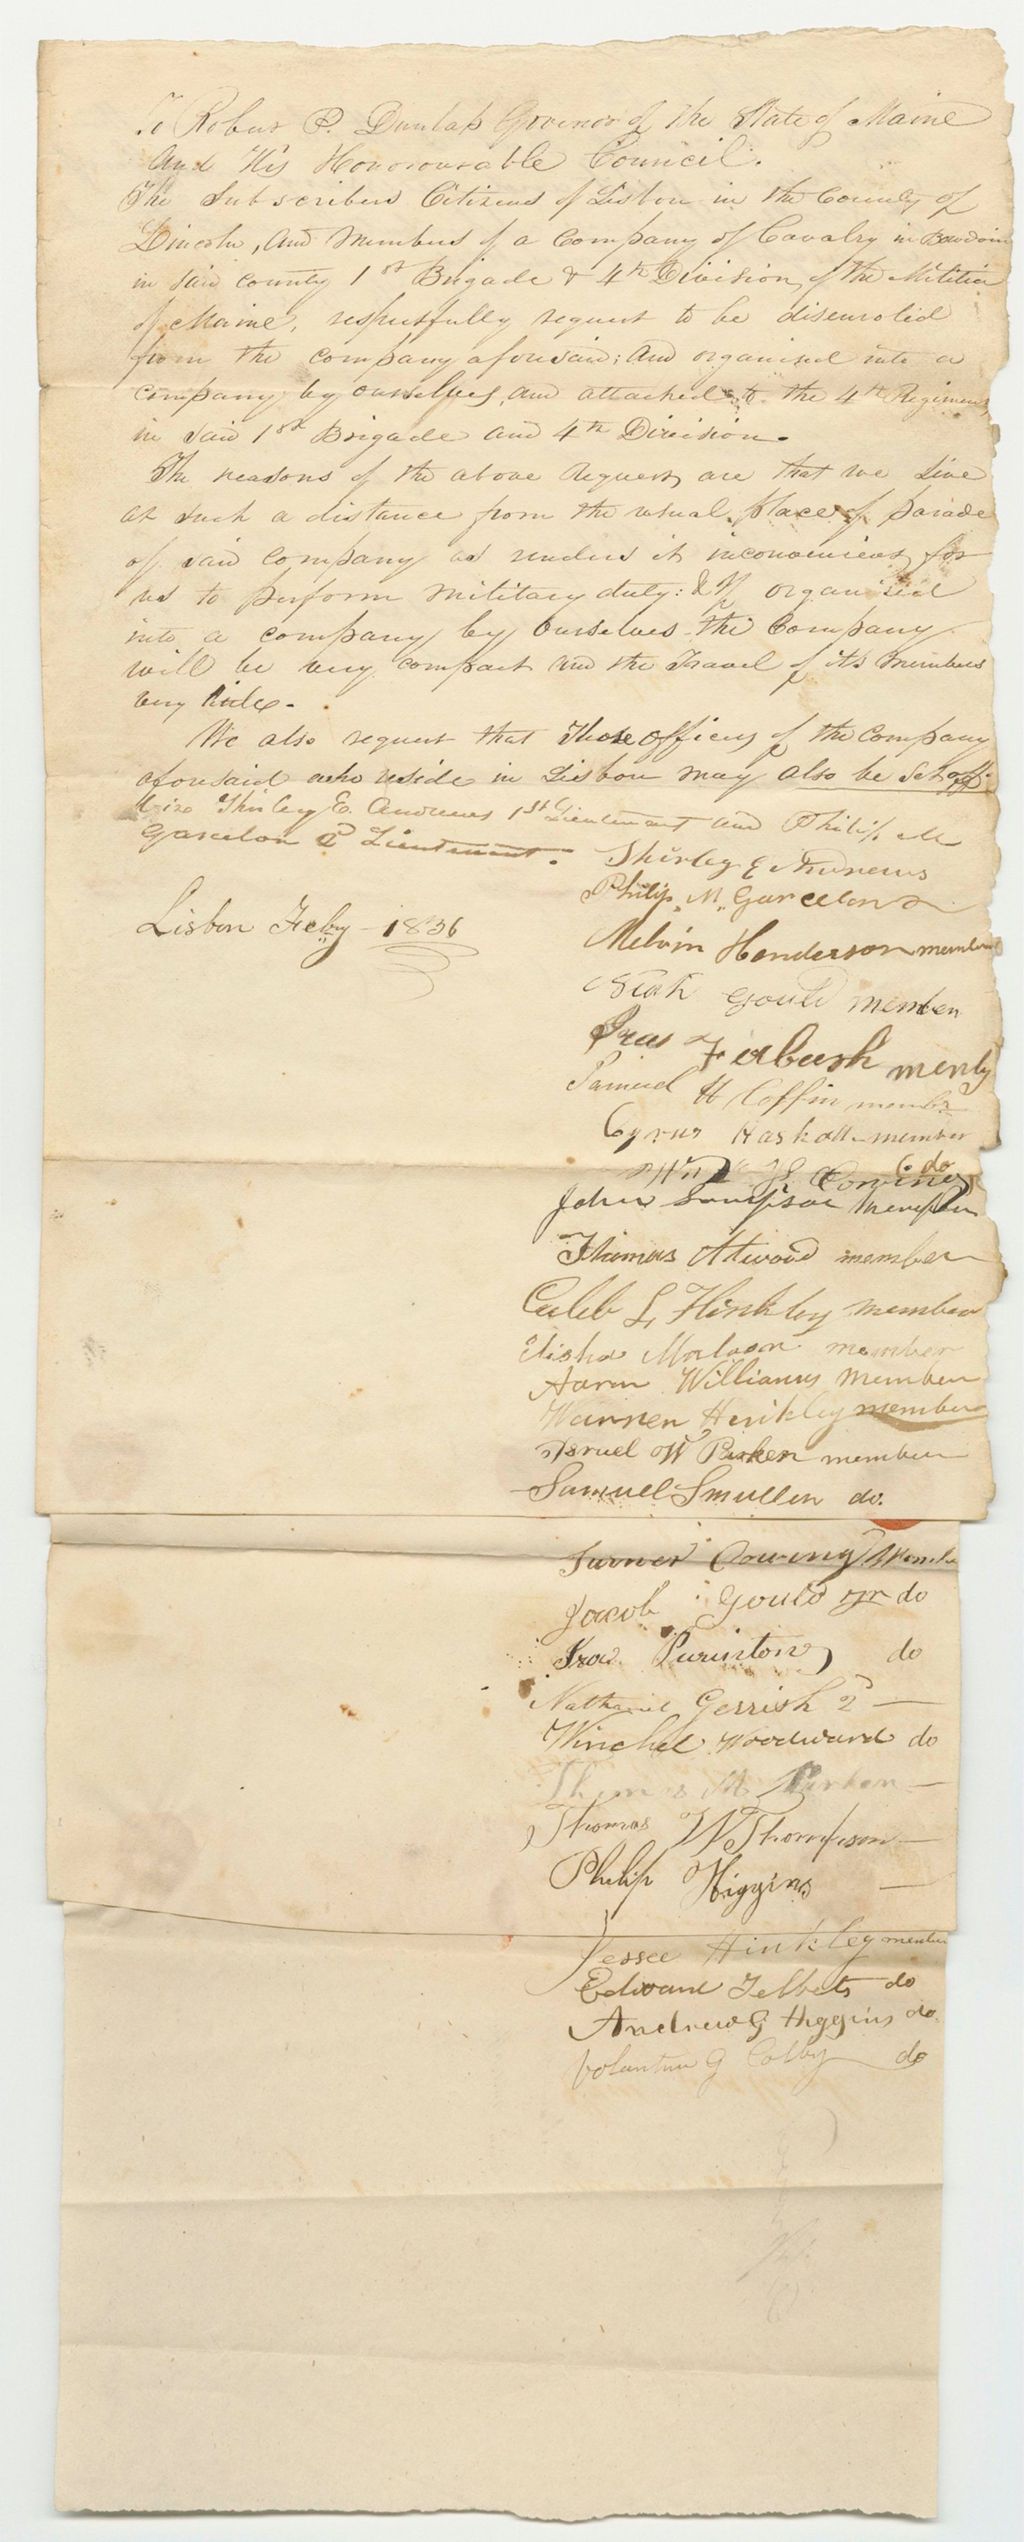 To Robert P. Dunlap Governor of the State of Maine
And His Honorourable Council.
The Subscribers Citizens of Lisbon in the County of
Lincoln, And Members of a Company of Cavalry in Bowdoin
in said county 1st Brigade & 4th Division of the Militia
of Maine, respectfully request to be disenroled
from the company aforesaid; And organised into a
company by ourselves, and attached to the 4th Regiment
in said 1st Brigade and 4th Division.
The reasons of the above request are that we Live
at such a distance from the usual place of parade
of said company as renders it inconvenient for
us to perform military duty: & if organised
into a company by ourselves the Company
will be very compact and the Travel of its members
very little.
We also request that those officers of the Company
aforesaid who reside in Lisbon may also be set off.
Shirley E. Andrews 1st Lieutenant and Philip M
Garcelon 2d Lieutenant.
Shirley E Andrews
Philip M Garcelon
Lisbon Feby 1836
Melvin Henderson member
Gould member
Furbush
Samuel H Coffin member
Cyrus Haskell member
do
Cowing
John Sampson member
Thomas Atwood member
Caleb L Hinkley member
Elisha member
Aaron Williams member
Warren Hinkley member
Israel W Parker member
Samuel Smullen do.
Turner Cowing
Jacob Gould Jr do
Isra Purinton do
Nathaniel Gerrish 2d —
Winchel Woodward do
Thomas M Parker —
Thomas W Thompson —
Philip Higgins —
Jessee Hinkley member
Edward Tebbets do
Andrew G Higgins do.
Volentine G Colby do